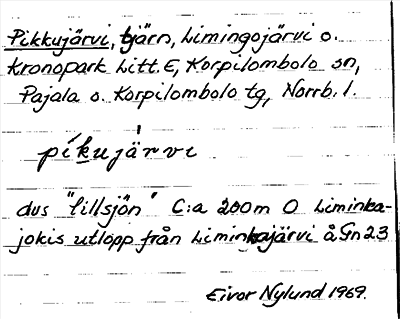 Pikkujärvi, tjärn, Limingojärvi o.
Kronopark Litt. E, Korpilombolo sn,
Pajala o. Korpilombolo tg, Norrb. l.
píkujàrvi
dvs "lillsjön" C:a 200m O Liminka-
jokis utlopp från Liminkajärvi å Gn 23
Eivor Nylund 1969.